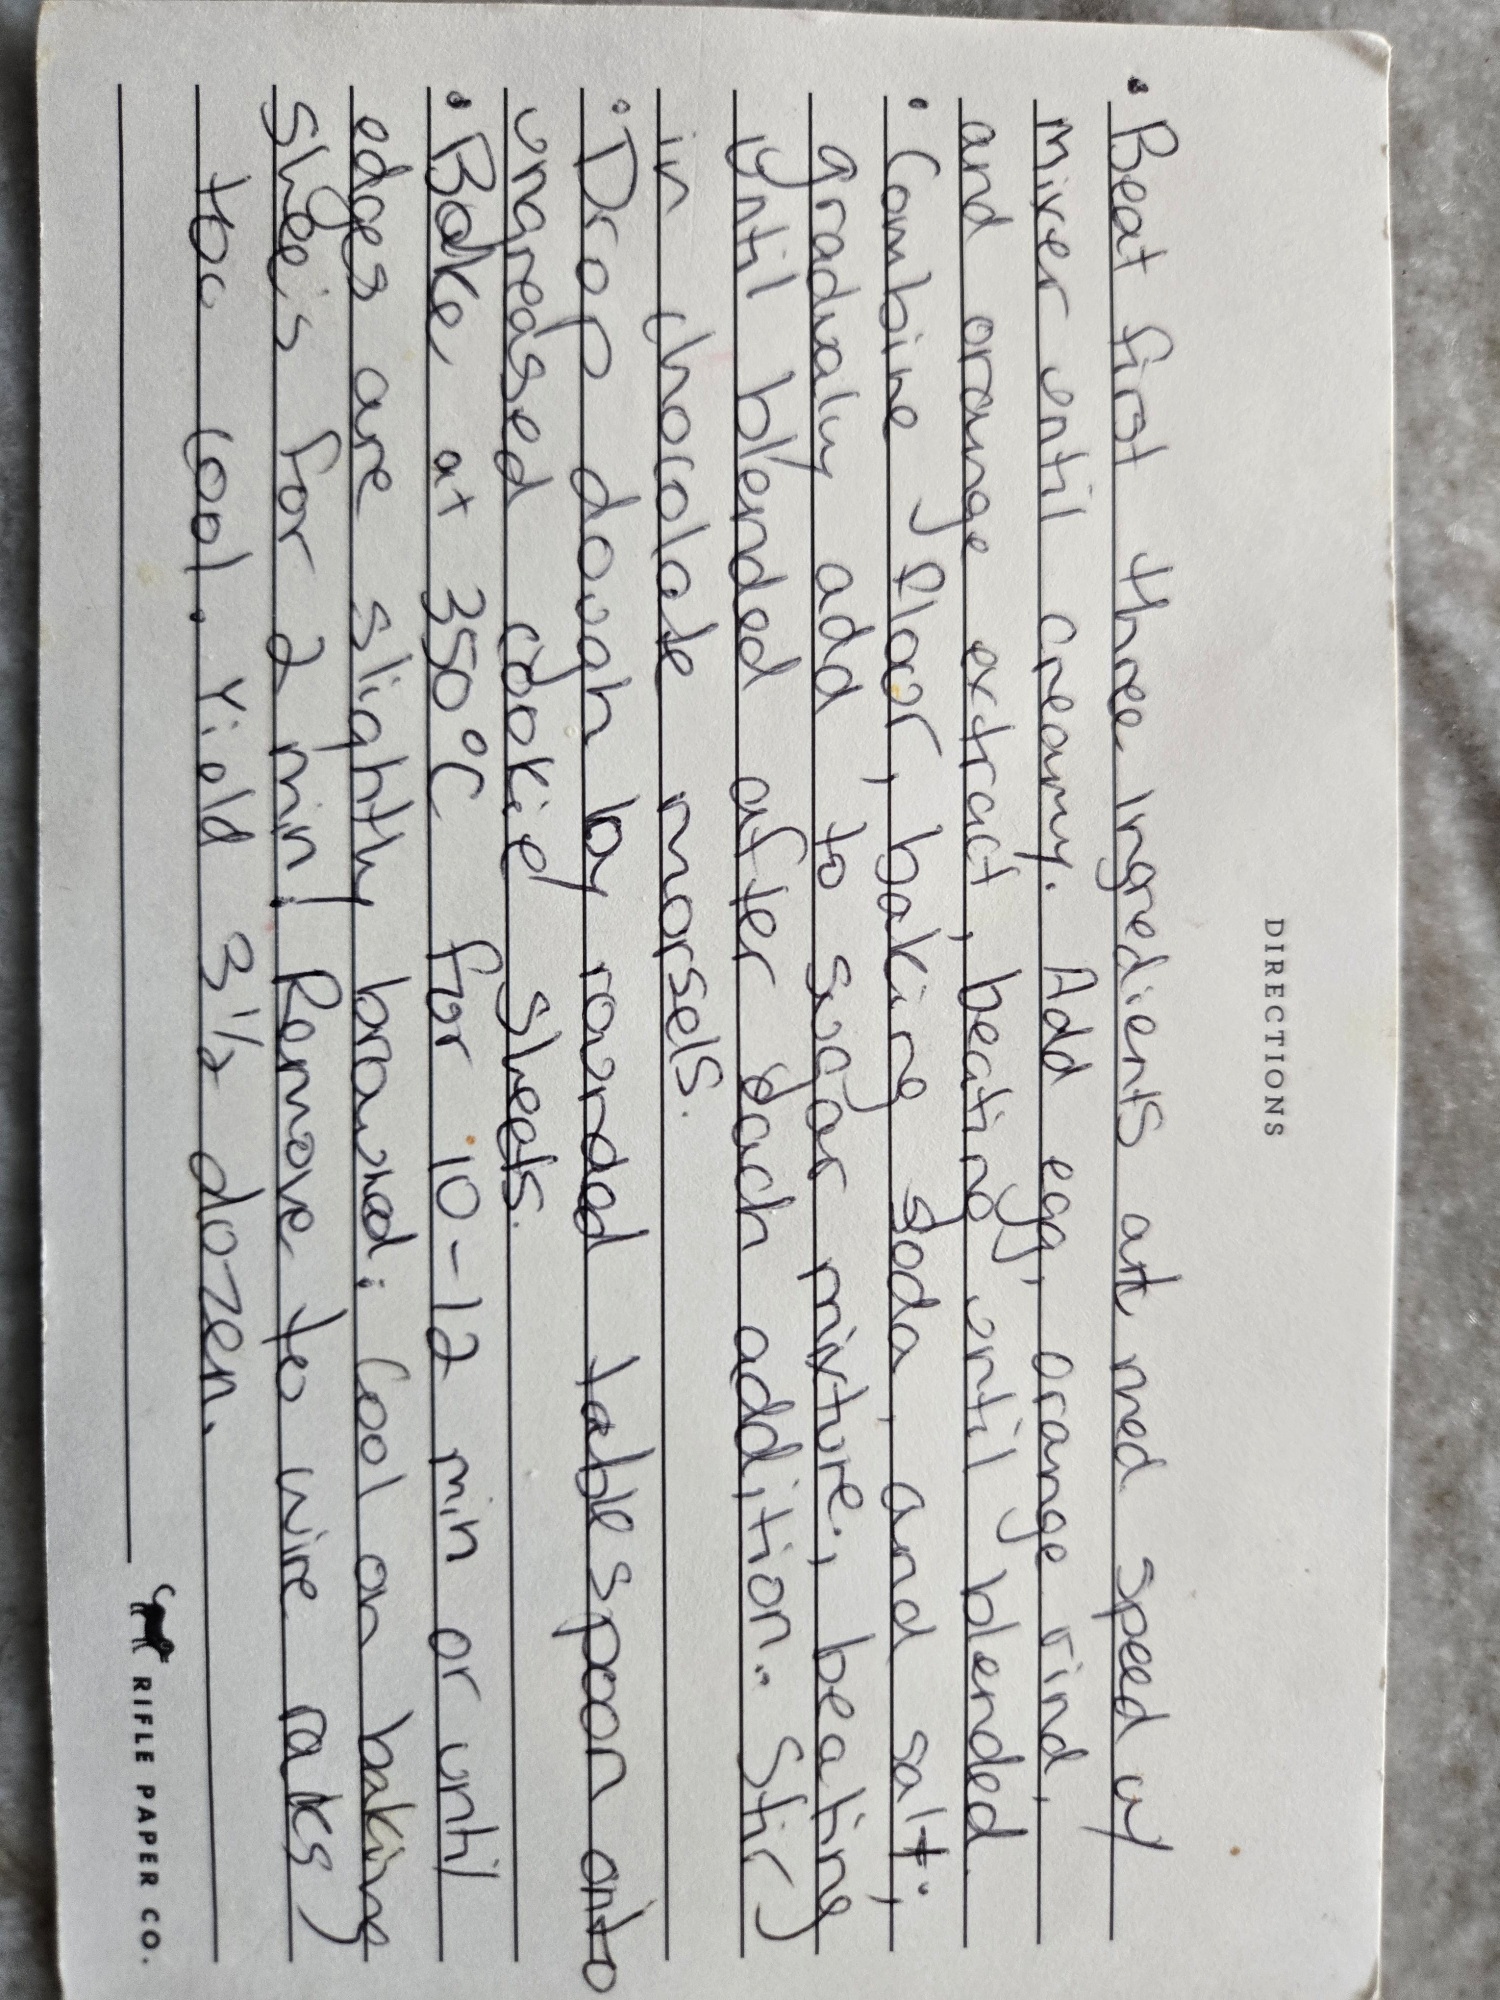 DIRECTIONS
• Beat first three ingredients at med speed w/
mixer until creamy. Add egg, orange rind,
and orange extract, beating until blended
• Combine flour, baking soda, and salt;
gradualy add to sugar mixture, beating
until blended after each addition. Stir
in chocolate morsels.
• Drop dough by rounded tablespoon onto
ungreased cookie sheets.
• Bake at 350°C for 10-12 min or until
edges are slightly browned; Cool on baking
sheets for 2 min! Remove to wire raks
to cool. Yield 3 1/2 dozen.
RIFLE PAPER CO.